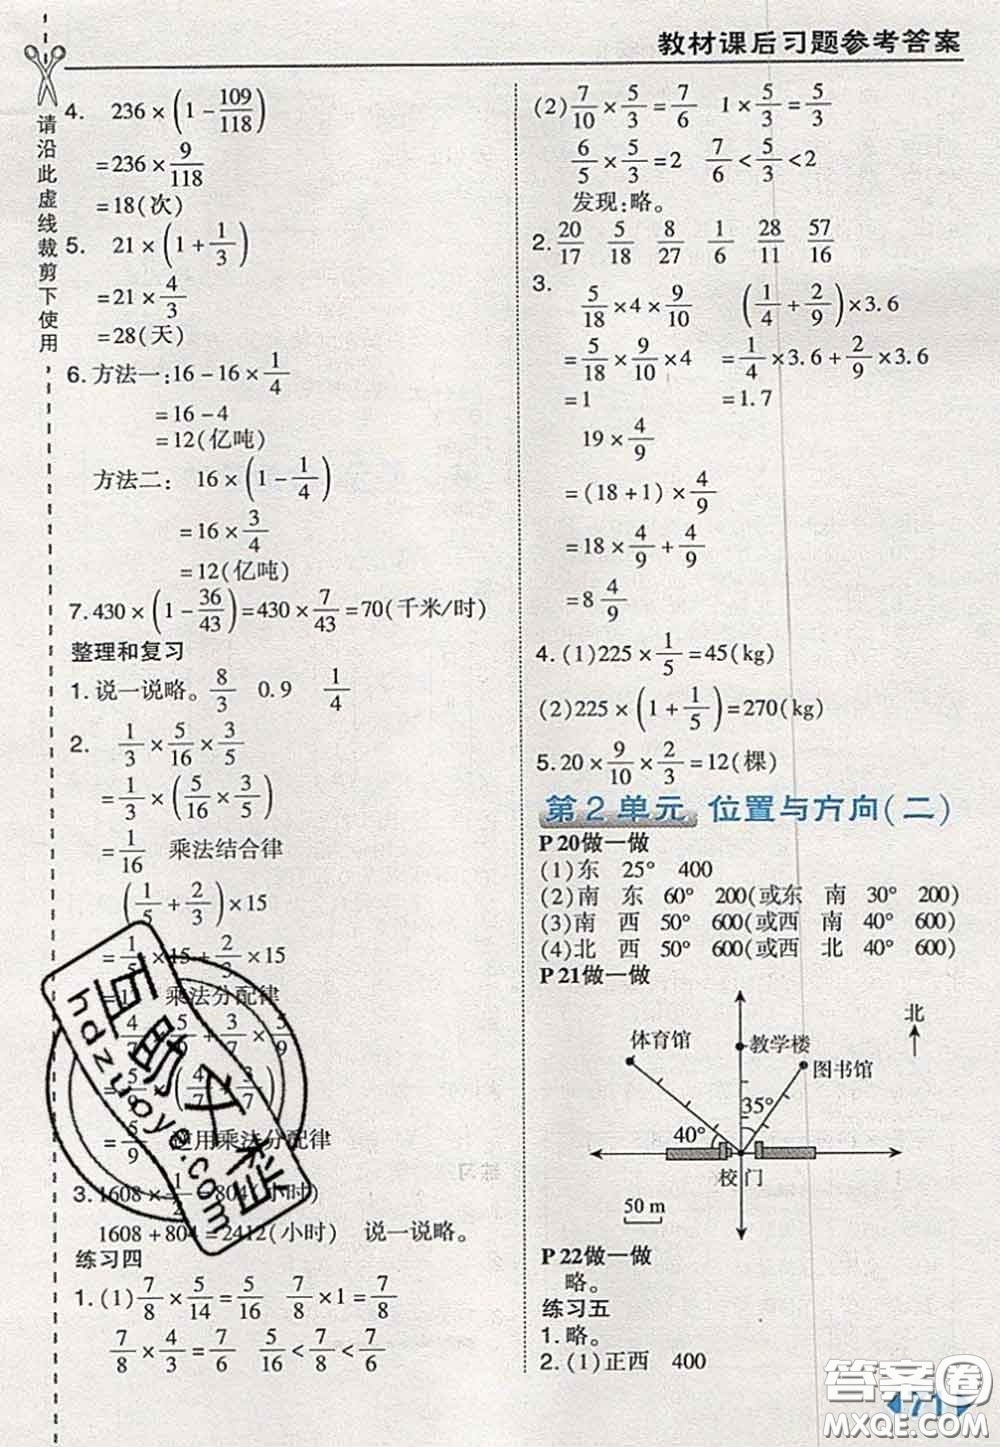 教材课后习题参考答案
请沿此虚线裁剪下使用
4. 236×(1-109/118)
=236×9/118
=18(次)
5. 21×(1+1/3)
=21×4/3
=28(天)
6.方法一:16-16×1/4
=16-4
=12(亿吨)
方法二: 16×(1-1/4)
=16×3/4
=12(亿吨)
7.430×(1-36/43)=430×7/43=70(千米/时)
整理和复习
1.说一说略。8/3 0.9 1/4
2. 1/3×5/16×3/5
=1/3×(5/16×3/5)
=1/16 乘法结合律
(1/5+2/3)×15
=1/5×15+2/3×15
乘法分配律
4/7×5/9+3/7×5/9
=5/9×(4/7+3/7)
=5/9 应用乘法分配律
3.1608×1/2=804(小时)
1608+804=2412(小时) 说一说略。
练习四
1.(1)7/8×5/14=5/16 7/8×1=7/8
7/8×4/3=7/6 5/16<7/8<7/6
(2)7/10×5/3=7/6 1×5/3=5/3
6/5×5/3=2 7/6<5/3<2
发现:略。
2. 20/17 5/18 8/27 1/6 28/11 57/16
3.
5/18×4×9/10 (1/4+2/9)×3.6
=5/18×9/10×4 =1/4×3.6+2/9×3.6
=1 =1.7
19×4/9
=(18+1)×4/9
=18×4/9+4/9
=8 4/9
4.(1)225×1/5=45(kg)
(2)225×(1+1/5)=270(kg)
5.20×9/10×2/3=12(棵)
第2单元 位置与方向(二)
P20做一做
(1)东 25° 400
(2)南 东 60° 200(或东 南 30° 200)
(3)南 西 50° 600(或西 南 40° 600)
(4)北 西 50° 600(或西 北 40° 600)
P21做一做
北
体育馆 教学楼
图书馆
35°
40°
校门
50 m
P22做一做
略。
练习五
1.略。
2.(1)正西 400
71
互助文档
hdzuoye.com
答案圈
MXQE.COM